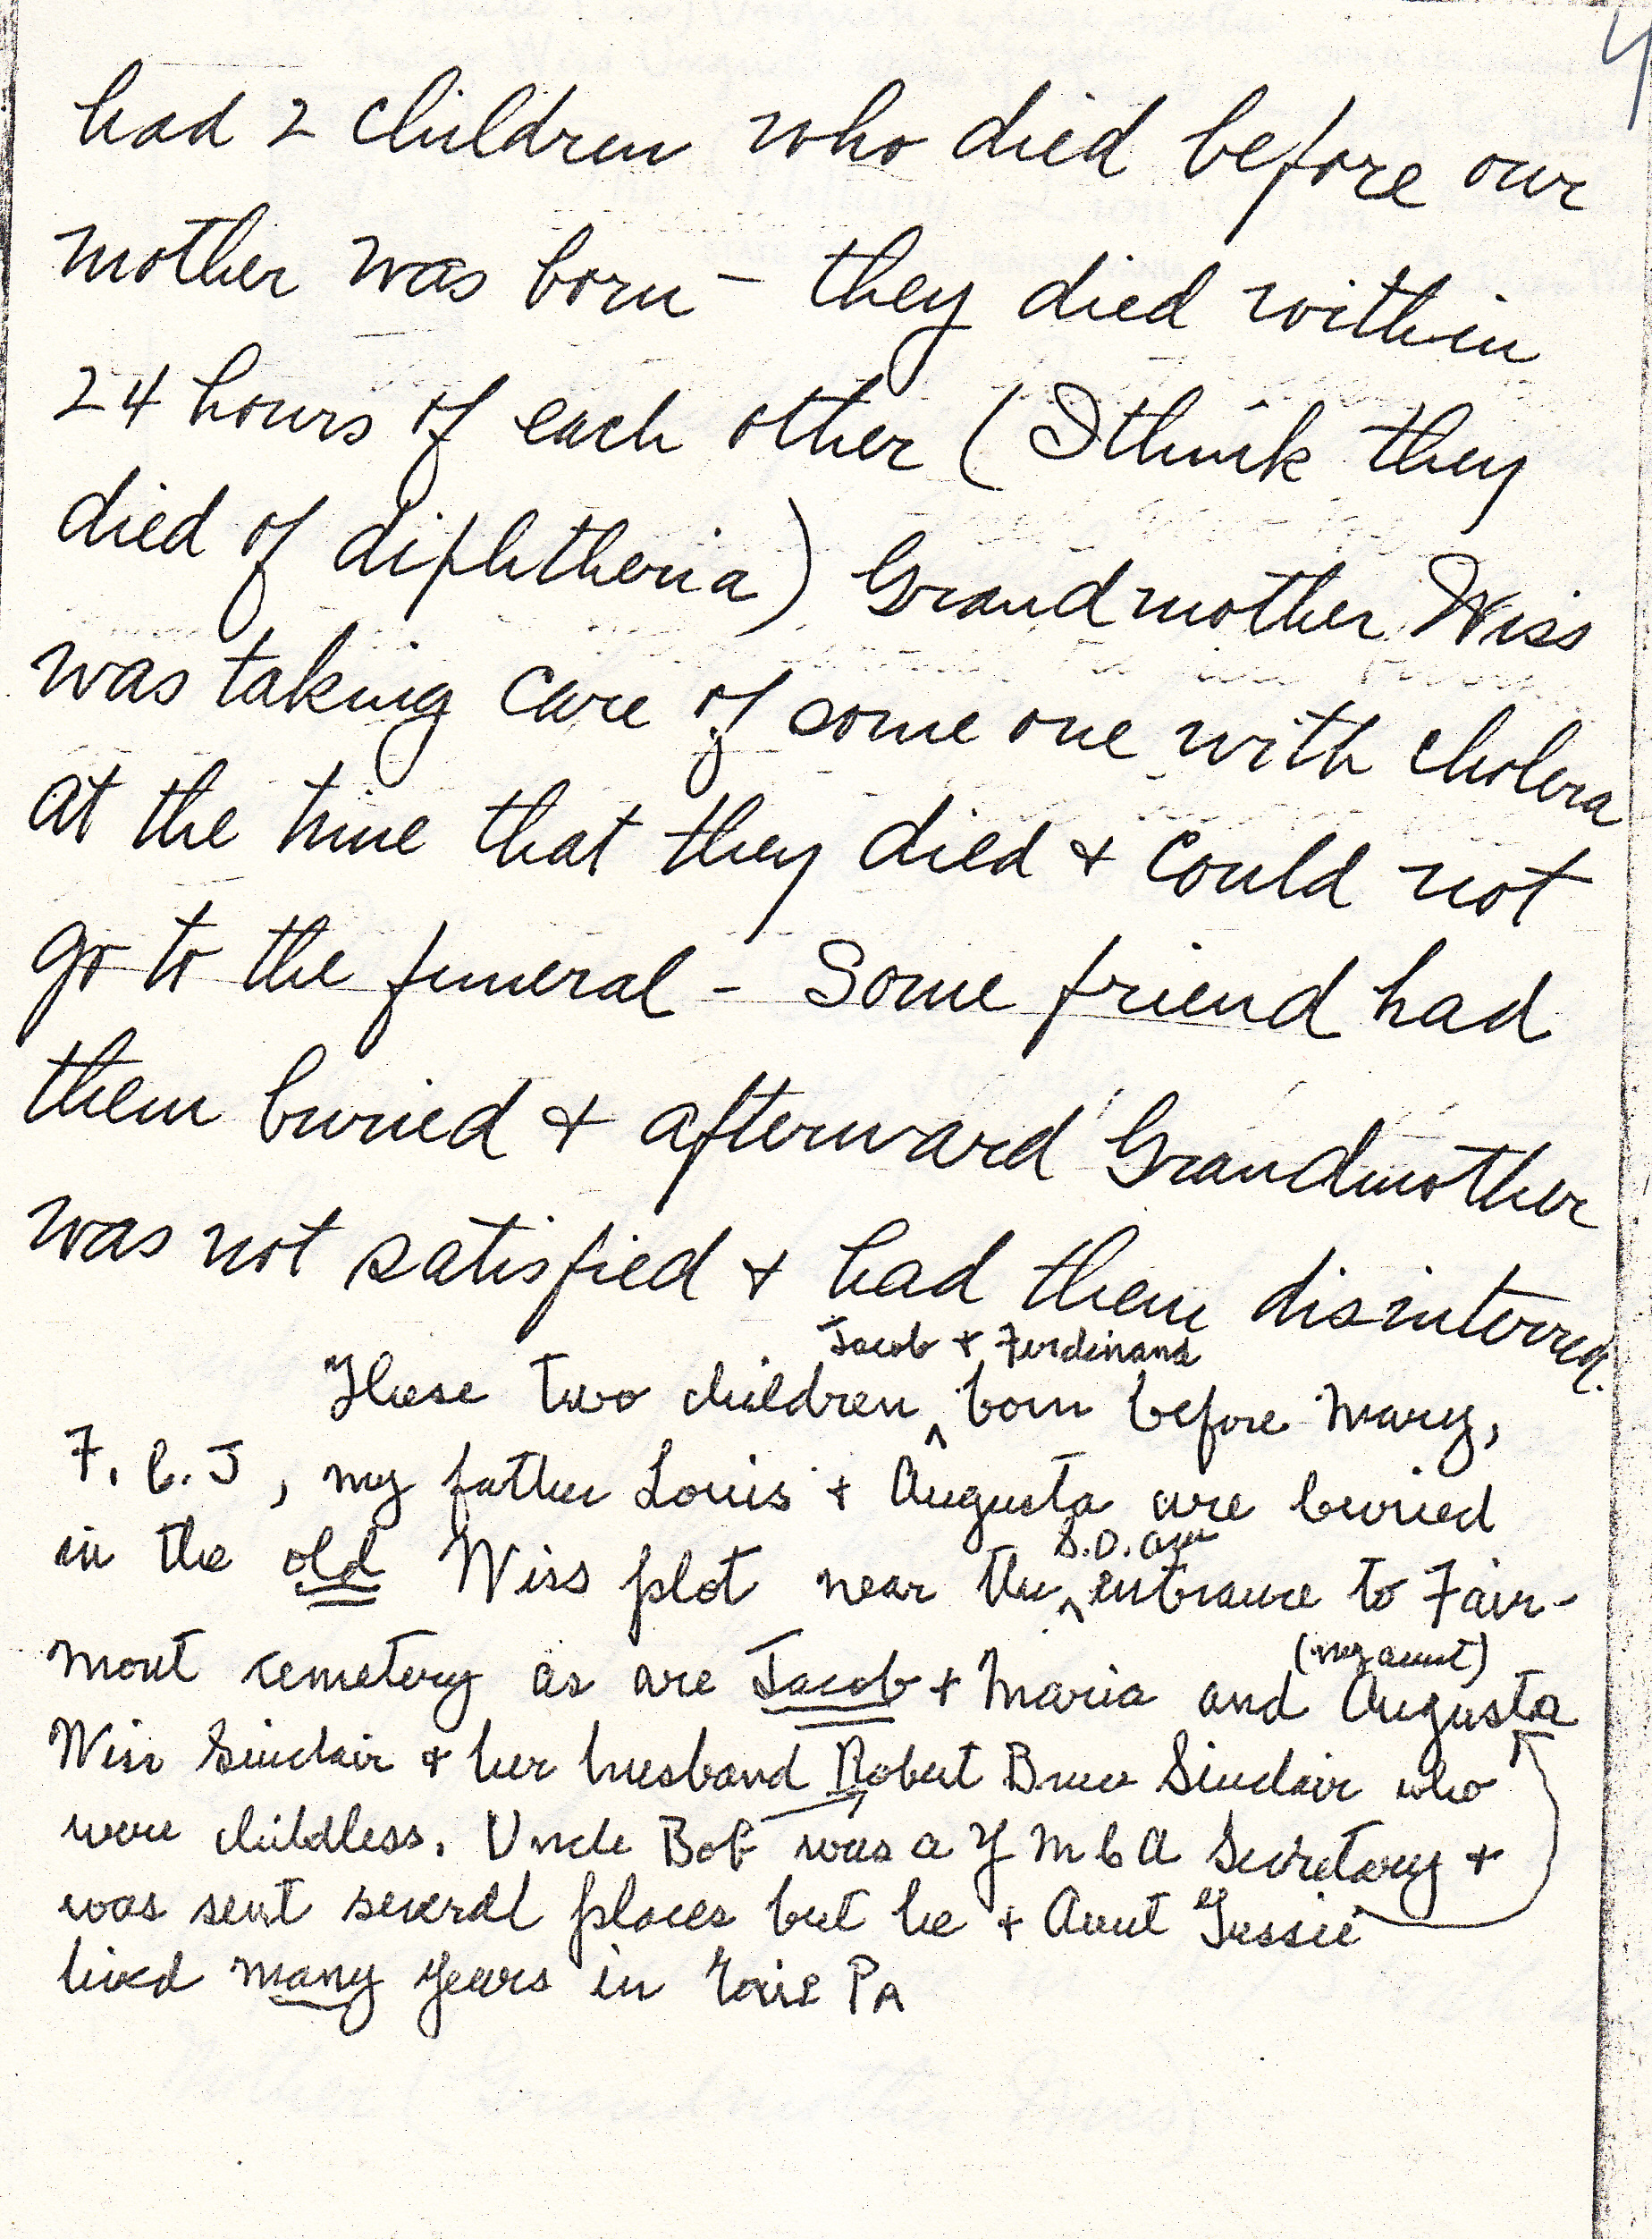 4
had 2 children who died before our
mother was born – they died within
24 hours of each other (I think they
died of diphtheria) Grandmother Wiss
was taking care of some one with cholera
at the time that they died + could not
go to the funeral – Some friend had
them buried + afterward Grandmother
was not satisfied + had them disinterred.
Jacob + Ferdinand
These two children ^ born before Mary,
F. C. J, my father Louis + Augusta are buried
S.O. ave
in the old Wiss plot near the ^ entrance to Fair-
(my aunt)
mont cemetery as are Jacob + Maria and Augusta
Wiss Sinclair + her husband Robert Bruce Sinclair who
were childless. Uncle Bob was a Y M C A Secretary +
was sent several places but he + Aunt Gussie
lived many years in Erie PA